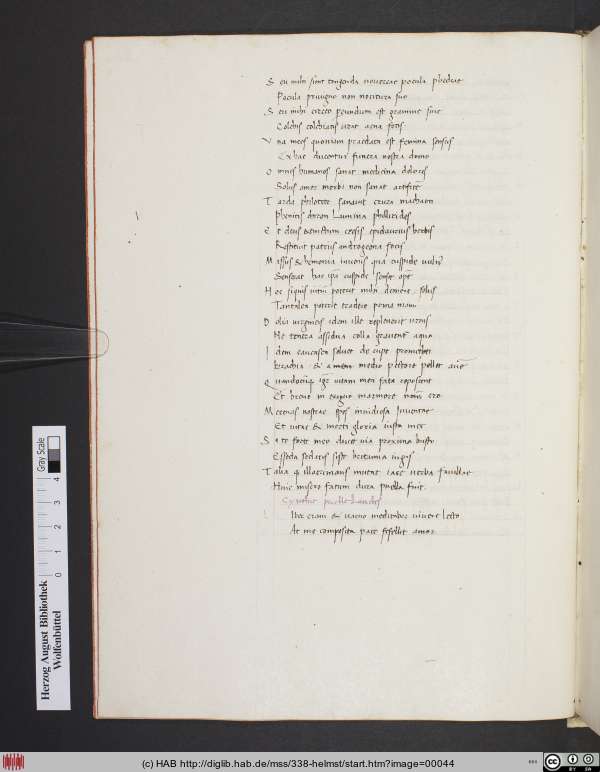 S eu mihi sint tangenda nouercae pocula phedrae
Pocula priuigno non nocitura suo
S eu mihi circeo pereundum est gramine siue
Colchis colchiacis urat aena focis
V na meos quoniam praedata est femina sensus
Ex hac ducentur funera nostra domo
O mnes humanos sanat medicina dolores
Solus amor morbi non sanat artificem
T arda philoctete sanauit crura machaon
Phenicis chiron Lumina phillirides
E t deus cressis epidaurius herbis
Restituit patriis androgeona focis
M issus & hemonia iuuenis qua cuspide uulnus
Senserat hac ipsa cuspide sensit opem
H oc siquis uitium poterit mihi demere solus
Tantalea poterit tradere poma manu
D olia uirgineis idem ille repleuerit urnis
Ne tenera assidua colla grauentur aqua
I dem caucasea soluet de rupe promethei
brachia & a medio pectore pellet auem
Q uandocumque igitur uitam mea fata reposcent
Et breue in exiguo marmore nomen ero
M ecenas nostrae spes inuidiosa Iuuentae
Et uitae & morti gloria iusta meae
S i te forte meo ducet uia proxima busto
Esseda caelatis siste britannia iugis
T alia que illacrimans mutae iace uerba fauillae
Huic misero fatum dura puella fuit
puelle
L iber eram & uacuo meditabar uiuere Lecto
At me composita pace fefellit amor
Herzog August Bibliothek
Wolfenbüttel
0 1 2 3 4
Gray Scale
(c) HAB http://diglib.hab.de/mss/338-helmst/start.htm?image=00044